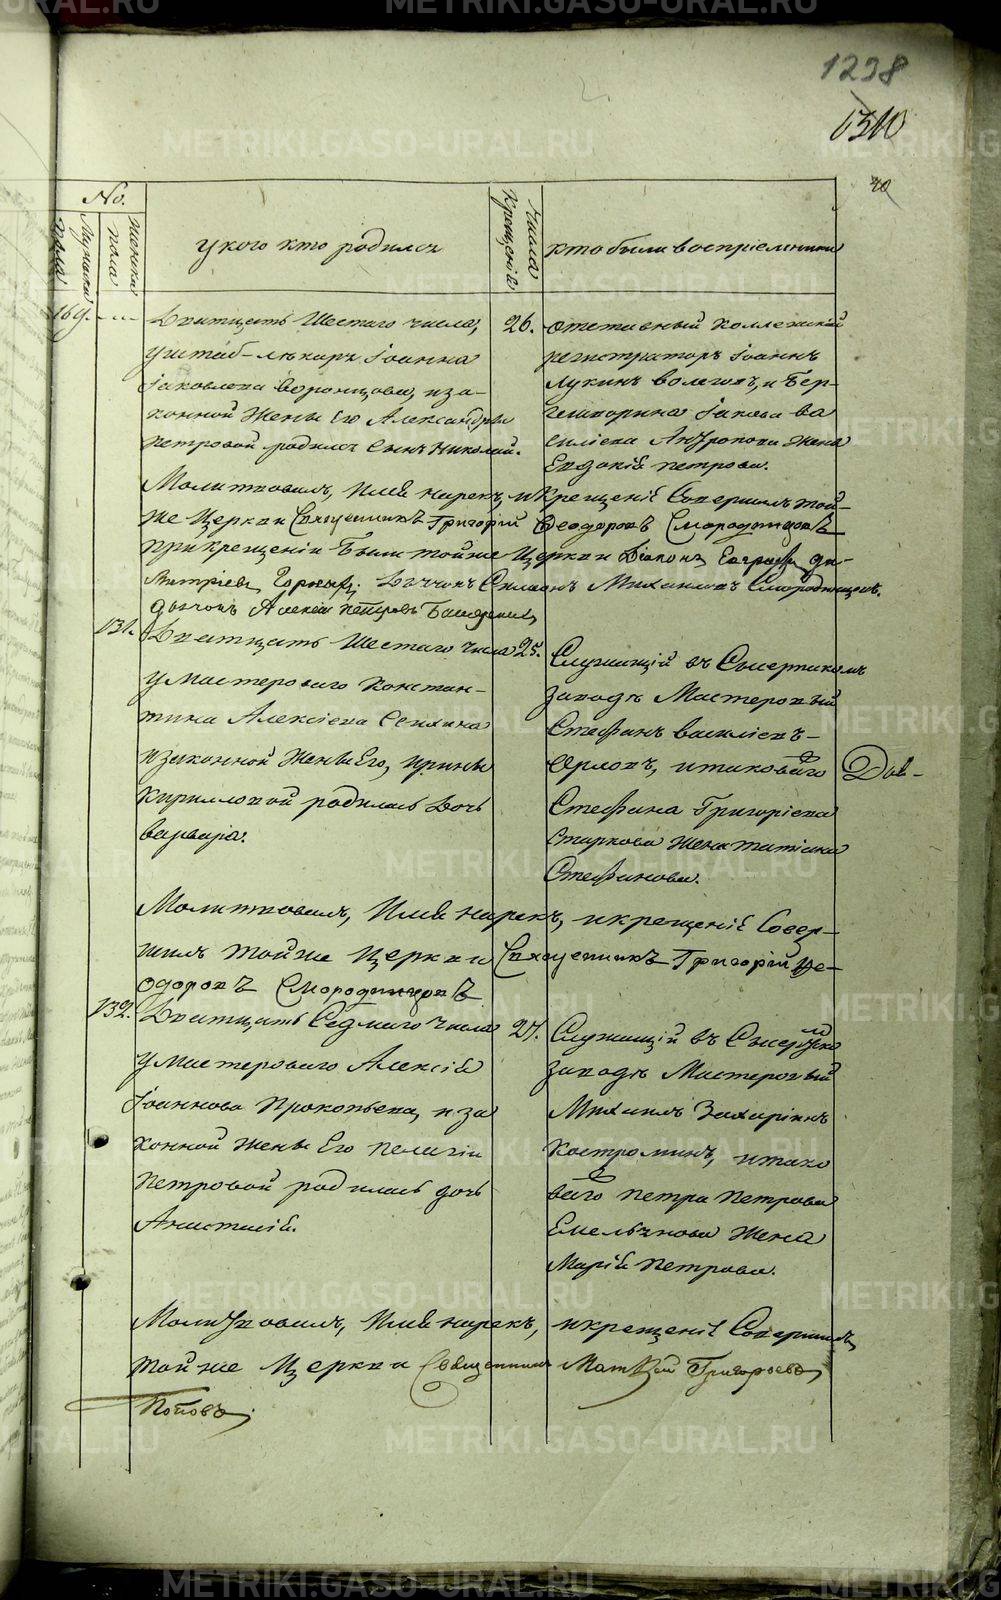 METRIKI.GASO-URAL.RU
1238
1310
40
No.
Мужеска пола
Женска пола
у кого кто родился
Числа Крещенія
кто были воспріемники
169.
Дватцать Шестаго числа,
у штаб-лѣкаря Іоанна
Іаковлева Воронцова, и за-
конной жены Его Александры
Петровой родился Сынъ Николай.
26.
отставный Коллежскій
регистраторъ Іоаннъ
Лукинъ Вологовъ, и Бер-
гешворина Іакова Ва
силіева Антропова жена
Евдокія Петрова.
Молитвовалъ, Имя нарекъ, и Крещеніе Совершилъ той-
же Церкви Священникъ Григорій Феодоровъ Смородинцовъ
При крещеніи были тойже Церкви Діаконъ Евграфъ Ди-
митріевъ Дьячокъ Симеонъ Михаиловъ Смородинцовъ.
дьячокъ Алексій Петровъ
131.
Дватцать Шестаго Числа
у Мастероваго Констан-
тина Алексіева Сенкина
и законной Жены Его, Ирины
Кирилловой родилась Дочь
Варвара.
25.
Служащій въ Сысертскомъ
заводѣ Мастеровый
Стефанъ Василіевъ-
Орловъ, и таковаго
Стефана Григоріева
Старкова Жена Татіана
Стефанова.
Дов-
Молитвовалъ, Имя нарекъ, и крещеніе Совер-
шилъ тойже Церкви Священникъ Григорій Фе-
одоровъ Смородинцовъ
132.
Дватцать Седмаго Числа
у Мастероваго Алексія
Іоаннова Прокопьева, и за
конной Жены Его Пелагіи
Петровой родилась дочь
Анастасія.
27.
Служащій въ Сысертско
заводѣ Мастеровый
Михаилъ Захаріинъ
Костроминъ, и тако
ваго Петра Петрова
Емельянова Жена
Марія Петрова.
Молитвовалъ, Имя нарекъ, и крещеніе Совершилъ
тойже Церкви Священникъ Матвей Григорьевъ
Поповъ